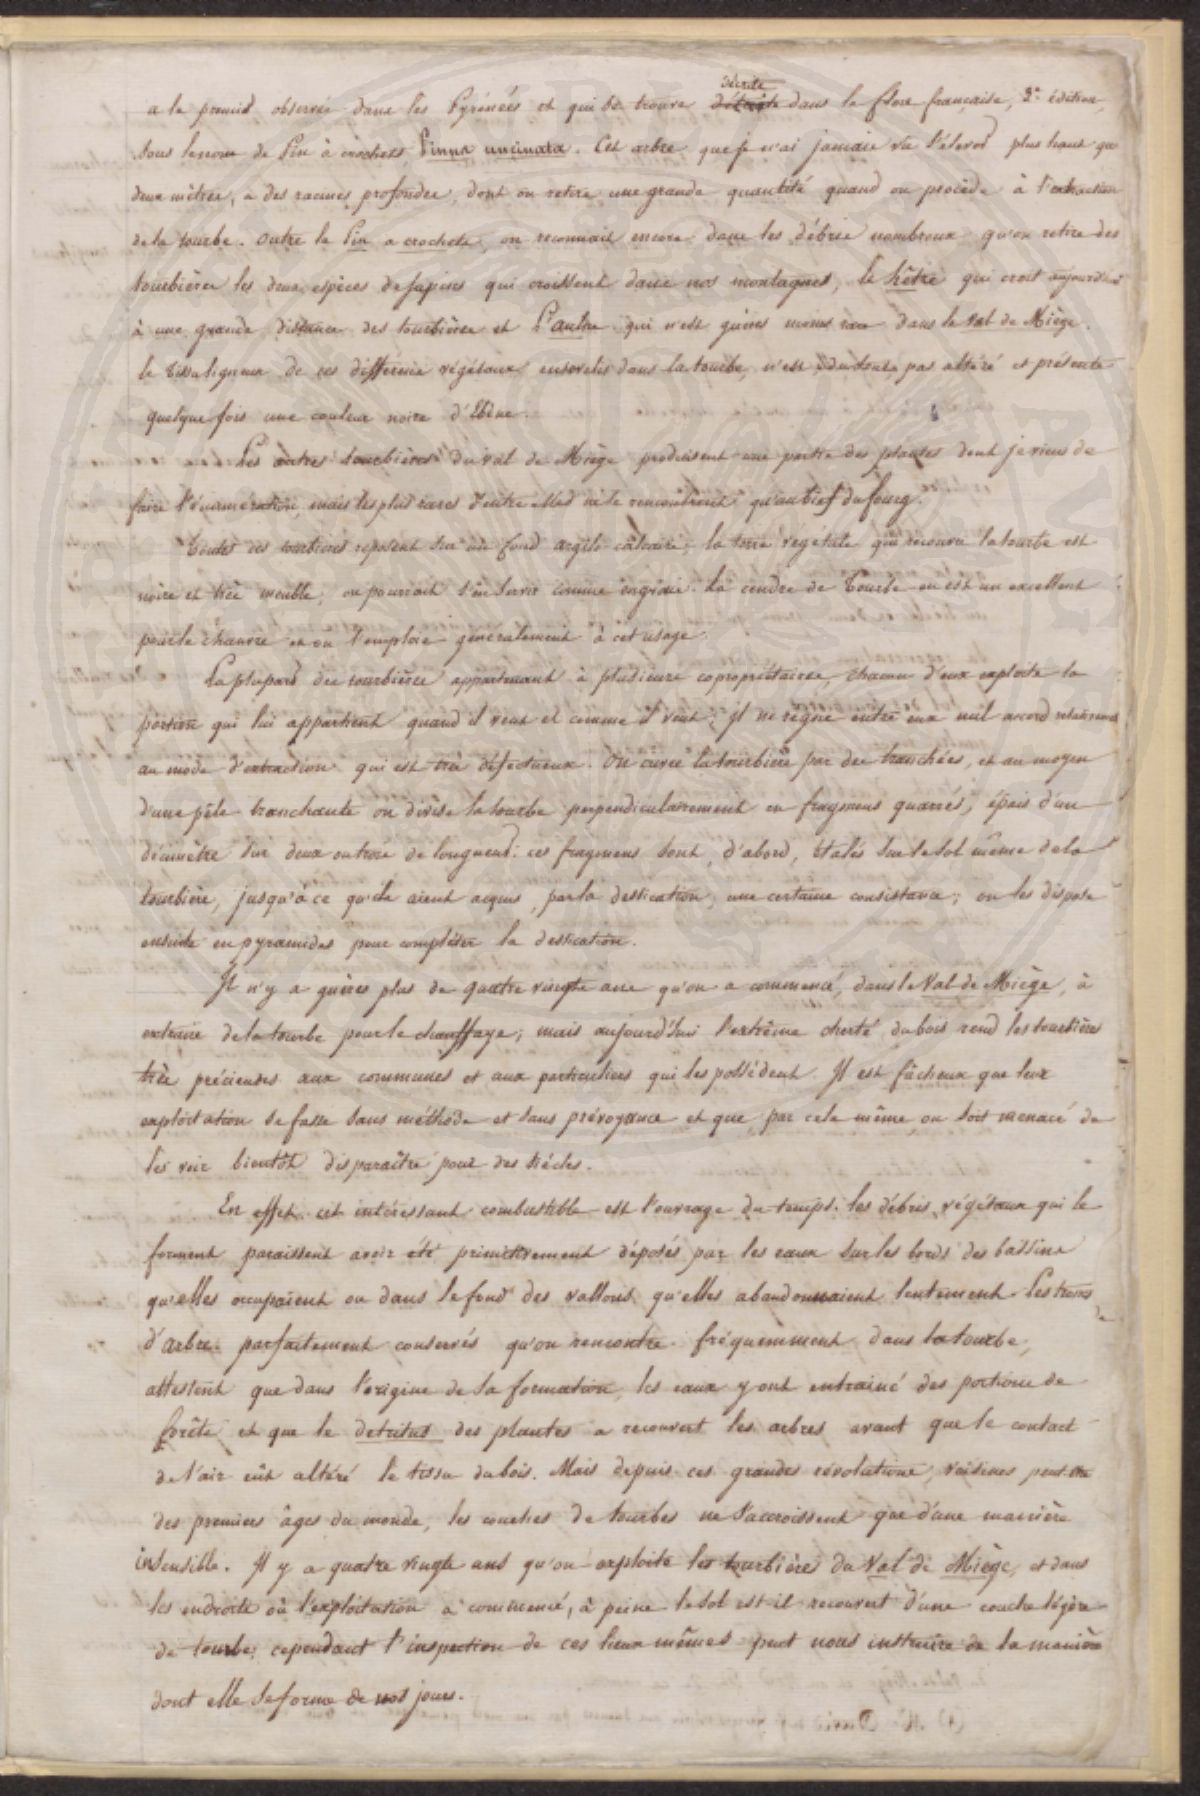 décrite
a le premier observée dans les Pyrénées et qui se trouve détaite dans la flore française, 2e édition,
sous le nom de Pin à crochets Pinus uncinata. Cet arbre que je n'ai jamais vu s'élever plus haut que
deux mètres, a des racines profondes, dont on retire une grande quantité quand on procède à l'extraction
de la tourbe. Outre le Pin a crochets, on reconnait encore dans les débris nombreux qu'on retire des
tourbières les deux espèces de sapins qui croissent dans nos montagnes, le hêtre qui croit aujourd'hui
à une grande distance des tourbières et l'aulne qui n'est guères moins rare dans le Val de Miège.
le tissu ligneux de ces différens végétaux ensevelis dans la tourbe, n'est du tout pas altéré et présente
quelque fois une couleur noire d'Ebène.
Les autres tourbières du val de Miège produisent une partie des plantes dont je viens de
faire l'énumération, mais les plus rares d'entre elles ne se rencontrent qu'au bief du fourg.
Toutes ces tourbières reposent sur un fond argilo calcaire; la terre végétale qui recouvre la tourbe est
noire et très meuble; on pourrait s'en servir comme engrais. La cendre de Tourbe en est un excellent
pour le chanvre et on l'emploie généralement à cet usage.
La plupart des tourbières appartenant à plusieurs copropriétaires, chacun d'eux exploite la
portion qui lui appartient quand il veut et comme il veut; Il ne règne entre eux nul accord relativement
au mode d'extraction qui est très défectueux. On ouvre la tourbière par des tranchées, et au moyen
d'une pêle tranchante on divise la tourbe perpendiculairement en fragmens quarrés, épais d'un
décimètre sur deux ou trois de longueur: ces fragmens sont, d'abord, étalés sur le sol même de la
tourbière, jusqu'à ce qu'ils aient acquis, par la dessication, une certaine consistance; on les dispose
ensuite en pyramides pour compléter la dessication.
Il n'y a guères plus de quatre vingts ans qu'on a commencé, dans le Val de Miège, à
extraire de la tourbe pour le chauffage; mais aujourd'hui l'extrême cherté du bois rend les tourbières
très précieuses aux communes et aux particuliers qui les possédent. Il est fâcheux que leur
exploitation se fasse sans méthode et sans prévoyance et que par cela même on soit menacé de
les voir bientôt disparaître pour des siècles.
En effet cet intéressant combustible est l'ouvrage du temps. les débris végétaux qui le
forment paraissent avoir été primitivement déposés par les eaux sur les bords des bassins
qu'elles occupaient ou dans le fond des vallons qu'elles abandonnaient lentement. Les troncs
d'arbre parfaitement conservés qu'on rencontre fréquemment dans la tourbe,
attestent que dans l'origine de sa formation, les eaux y ont entrainé des portions de
forêts et que le detritus des plantes a recouvert les arbres avant que le contact
de l'air eût altéré le tissu du bois. Mais depuis ces grandes révolutions, voisines peut-être
des premiers âges du monde, les couches de tourbes ne s'accroissent que d'une manière
insensible. Il y a quatre vingts ans qu'on exploite les tourbières du Val de Miège, et dans
les endroits où l'exploitation a commencé, à peine le sol est-il recouvert d'une couche légère
de tourbe; cependant l'inspection de ces lieux mêmes peut nous instruire de la manière
dont elle se forme de nos jours.